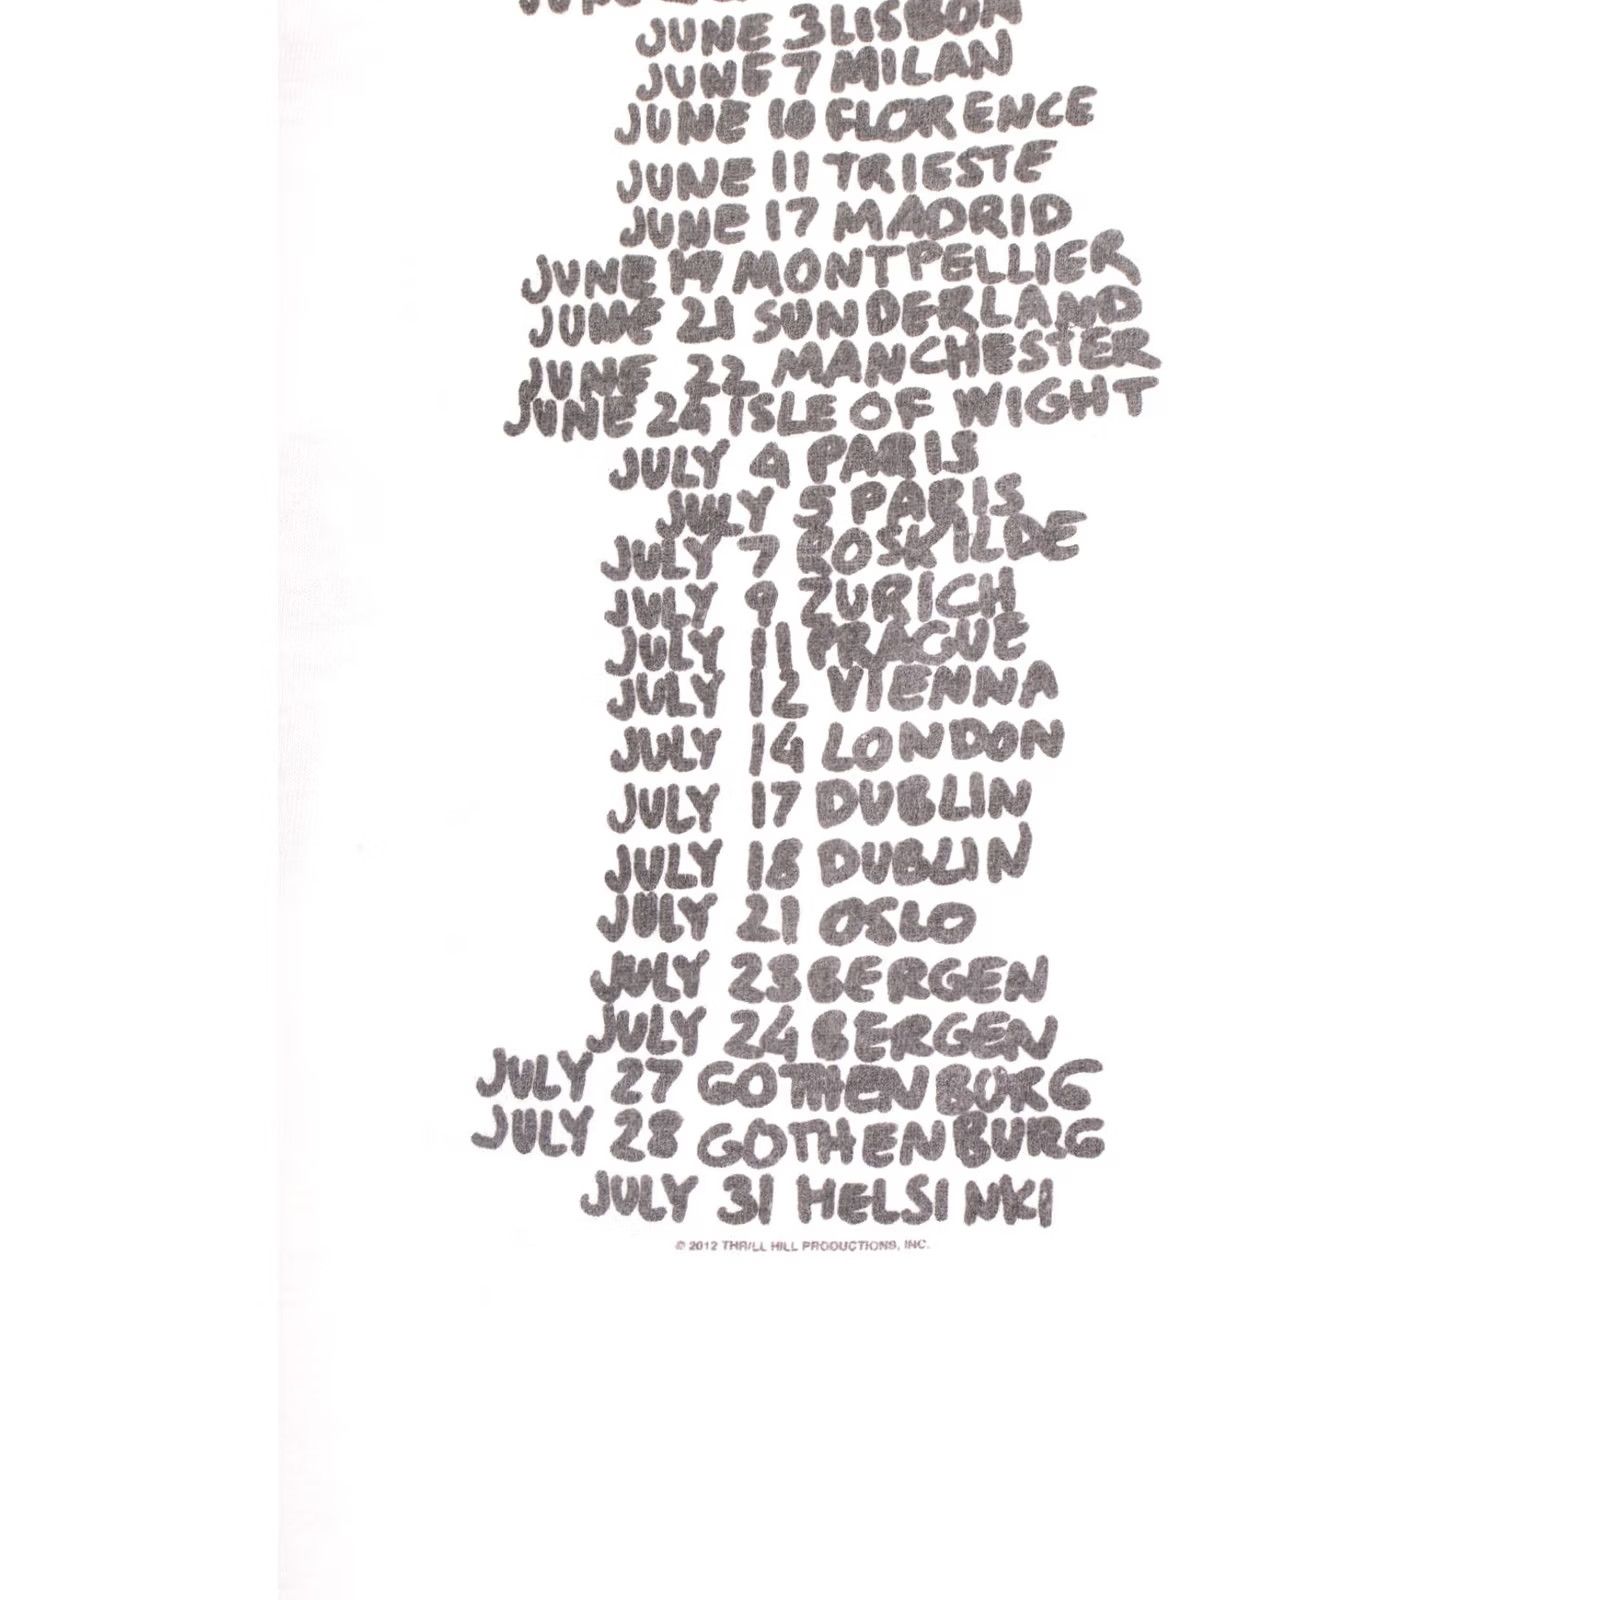 JUNE
JUNE 3 LISBON
JUNE 7 MILAN
JUNE 10 FLORENCE
JUNE 11 TRIESTE
JUNE 17 MADRID
JUNE 19 MONTPELLIER
JUNE 21 SUNDERLAND
JUNE 22 MANCHESTER
JUNE 24 ISLE OF WIGHT
JULY 4 PARIS
JULY 5 PARIS
JULY 7 ROSKILDE
JULY 9 ZURICH
JULY 11 PRAGUE
JULY 12 VIENNA
JULY 14 LONDON
JULY 17 DUBLIN
JULY 18 DUBLIN
JULY 21 OSLO
JULY 23 BERGEN
JULY 24 BERGEN
JULY 27 GOTHENBURG
JULY 28 GOTHENBURG
JULY 31 HELSINKI
© 2012 THRILL HILL PRODUCTIONS, INC.